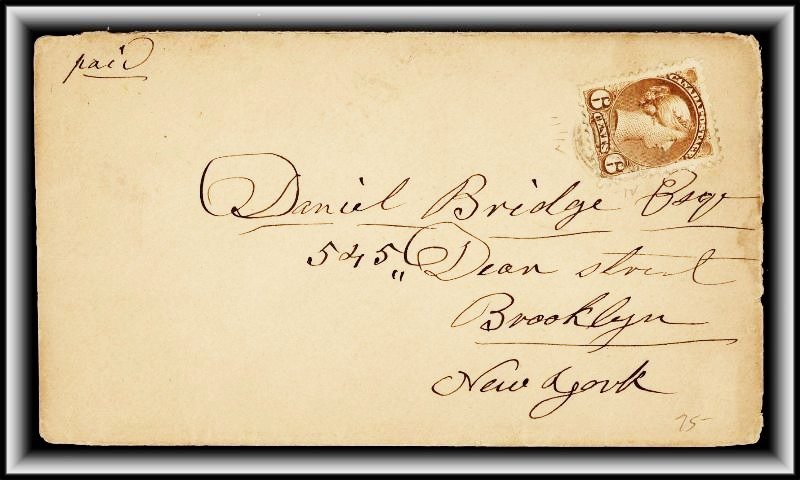 paid
6 CENTS 6
CANADA POSTAGE
Daniel Bridge Esqr
545 " Dean street
Brooklyn
New York
75-